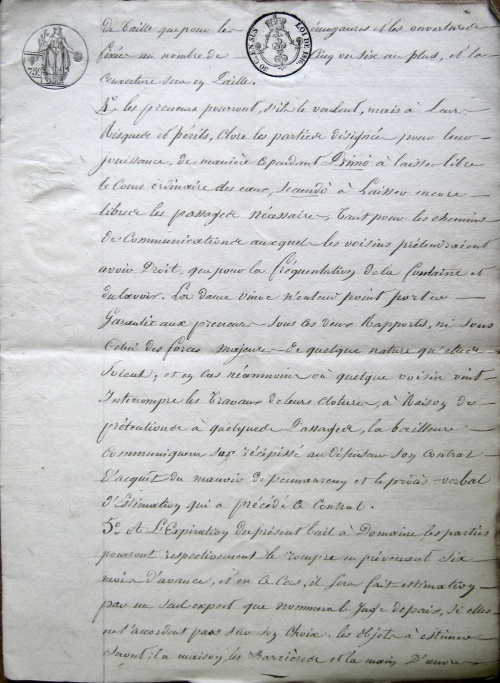 de taille que pour les
fixer au nombre de cinq ou six au plus, et la
couverture sera en Paille.
4º. les preneurs pourront, s'ils le veulent, mais à Leurs
Risques et périls, Clore les parties désignées pour leur
jouissance, de manière cependant Primo à laisser libre
le Cours ordinaire des eaux, Secundò à Laisser encore
libres les passages nécessaires, Tant pour les chemins
de Communications auxquels les voisins prétendraient
avoir Droit, que pour la fréquentation de la fontaine et
du lavoir. La dame veuve n'entend point porter
Garantie aux preneurs sous ces deux Rapports, ni sous
Celui des forces majeures de quelque nature qu'elles
soient, et en Cas néanmoins où quelque voisin vint
Interrompre les travaux de leurs clotures, à Raison de
prétentions à quelques Passages, la bailleure
communiquera sur récipissé au défenseur son contrat
D'acquet du manoir de et le procès-verbal
d'Estimation qui a précédé ce Contrat.
5º. A L'Expiration du présent bail à Domaine les parties
pourront respectivement le rompre en prévenant six
mois d'avance, et en ce Cas, il sera fait estimation
par un seul expert que nommera le Juge de paix, si elles
ne s'accordent pas sur son Choix. les objets à estimer
seront: la maison, les Barrières et la main D'œuvre